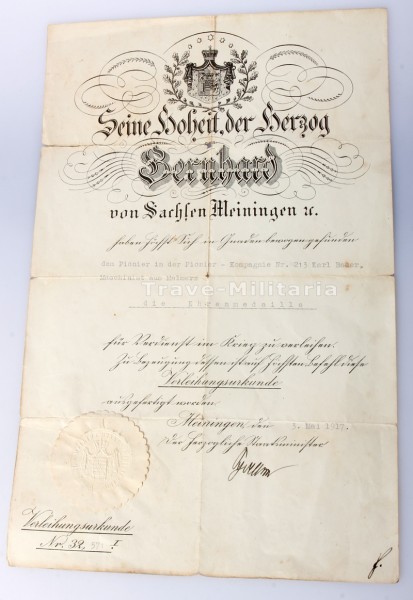 Seine Hoheit, der Herzog
Bernhard
von Sachsen Meiningen &.
haben Höchst Sich in Gnaden bewogen gefunden
dem Pionier in der Pionier - Kompagnie Nr. 213 Karl
Travé-Militaria
die
für Verdienst im Krieg zu verleihen.
Zu Bezeugung dessen ist auf Höchsten Befehl diese
Verleihungsurkunde
ausgefertigt worden.
Meiningen, den 3. Mai 1917.
Der Herzogliche Staatsminister
Verleihungsurkunde
Nr. 32,